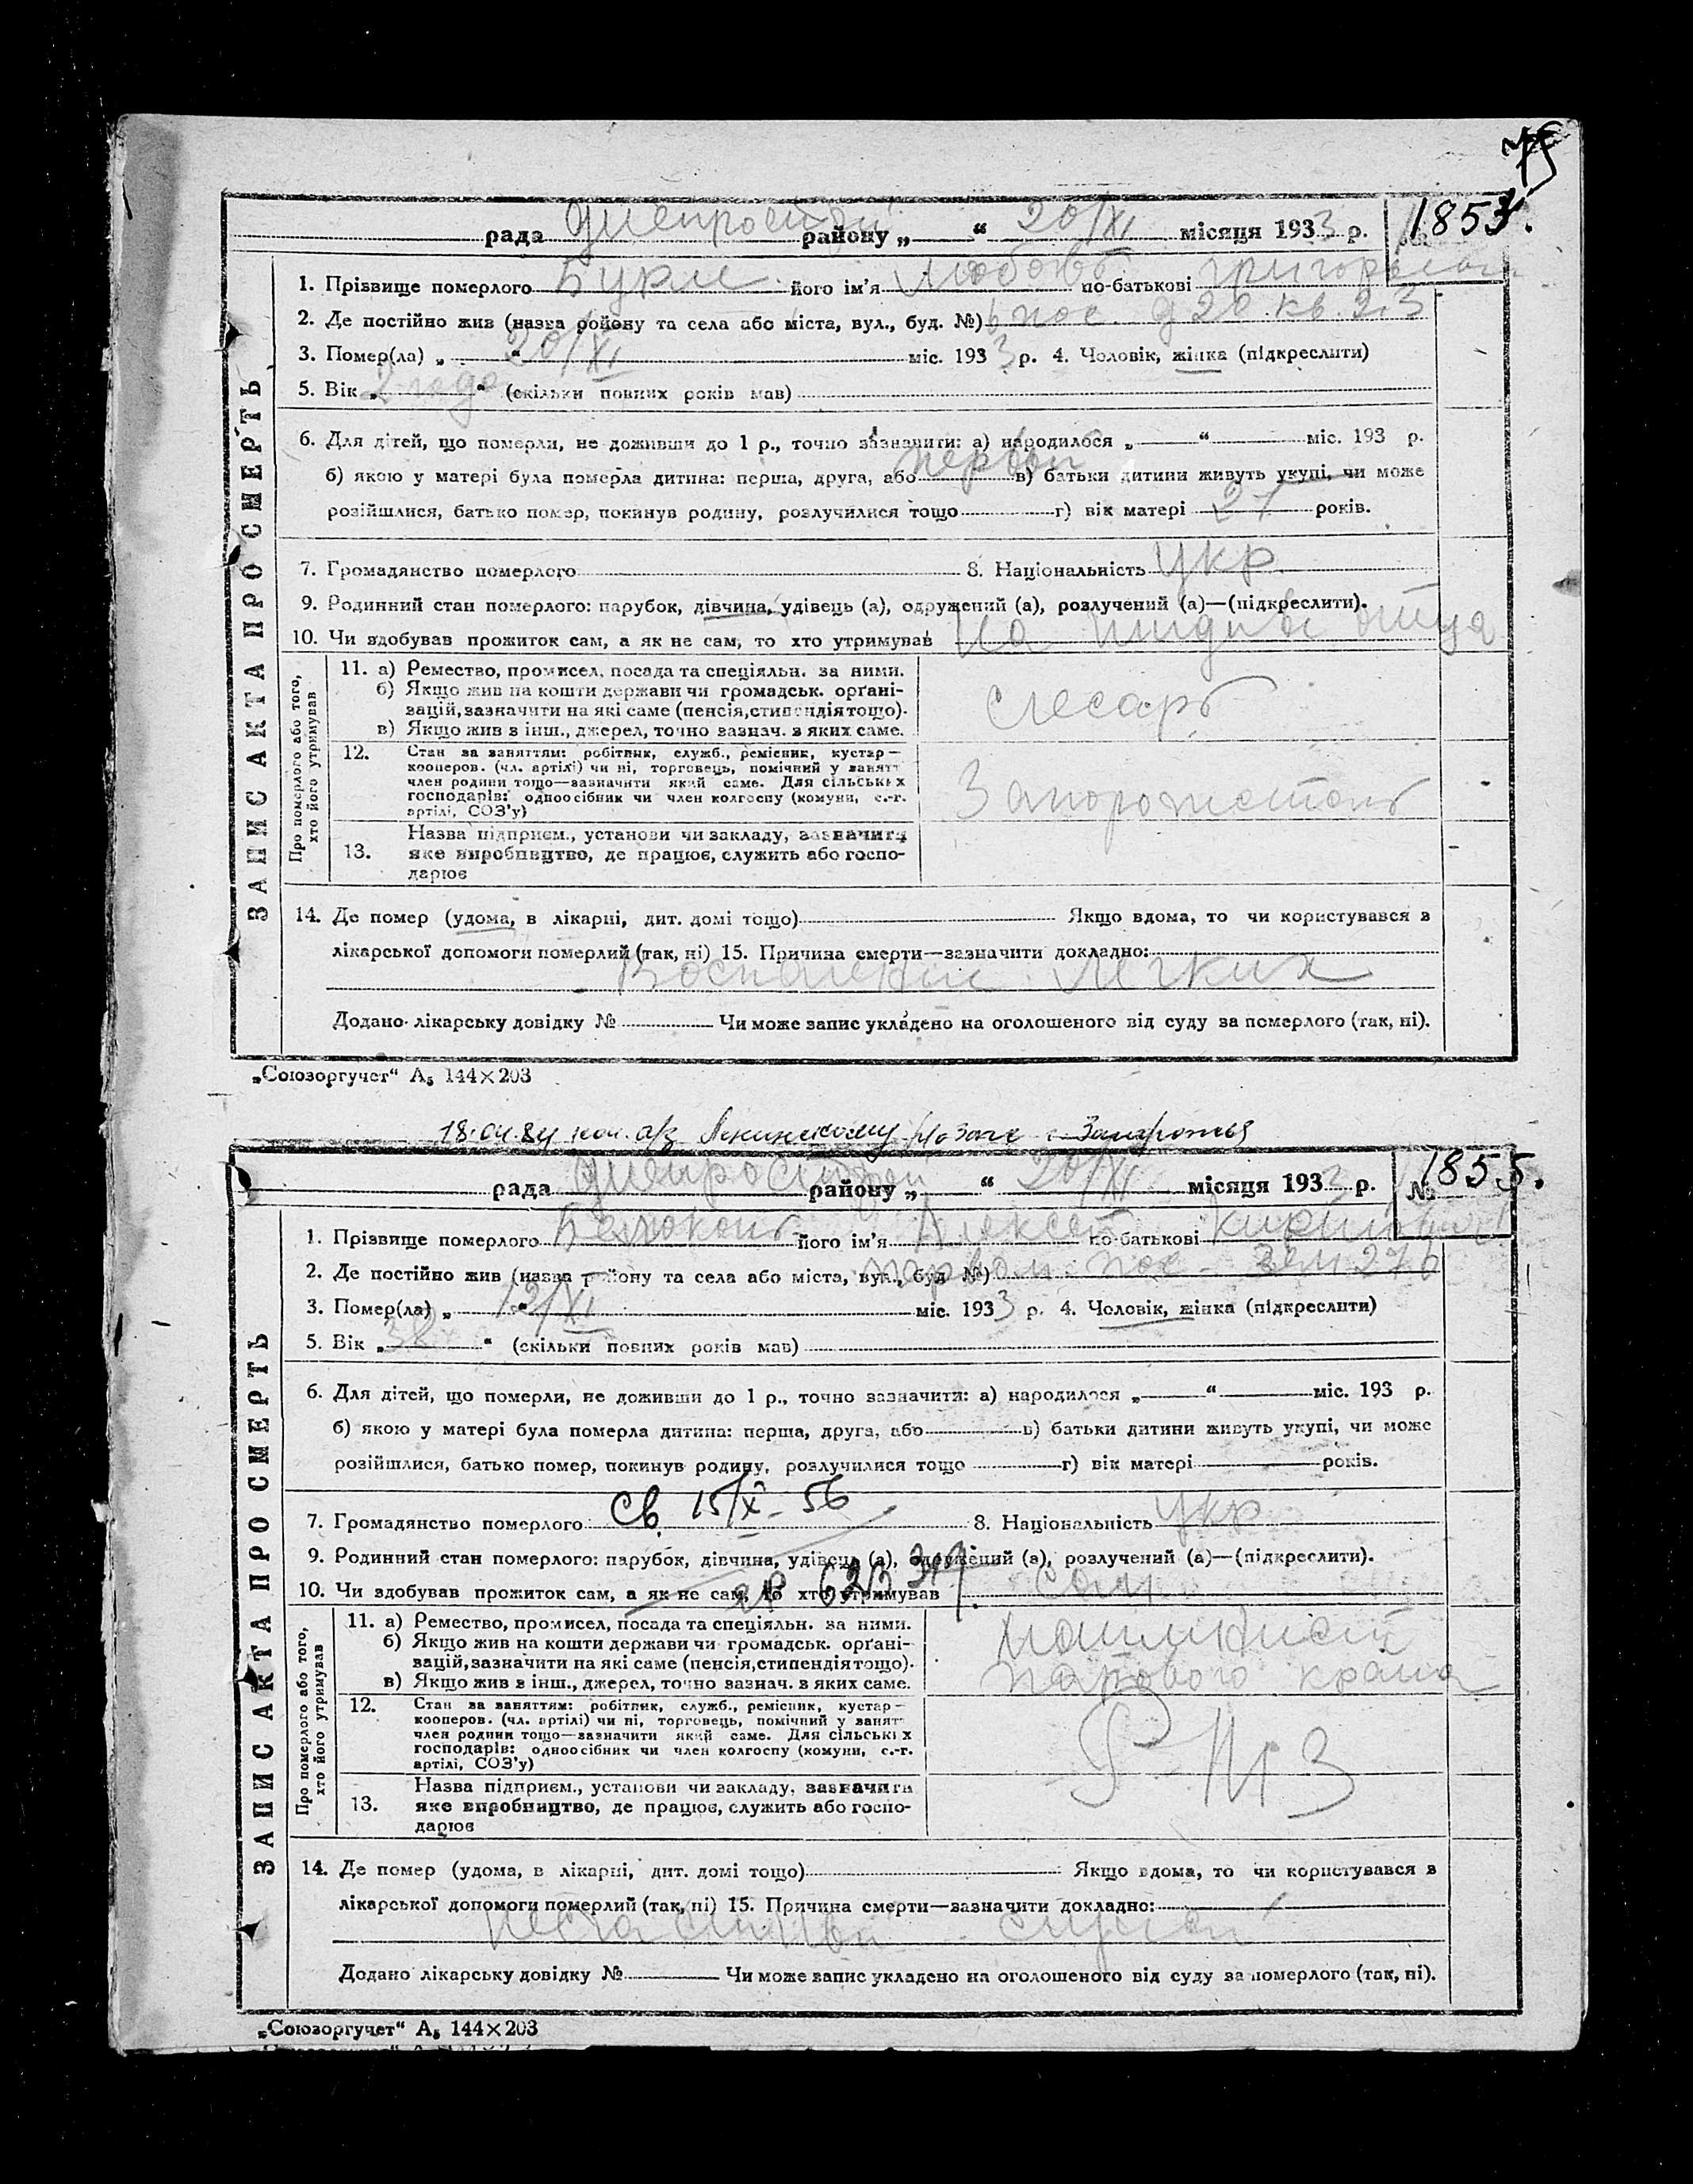 75
рада Днепрострой району „ “ 20/XI місяця 1933 р. 1853.
1. Прізвище померлого його ім’я Любовь по-батькові Григорьевна
2. Де постійно жив (назва району та села або міста, вул., буд. №) 6 пос. д 20 кв. 23
3. Помер(ла) „ “ 20/XI міс. 1933 р. 4. Чоловік, жінка (підкреслити)
5. Вік „ 2 года “ (скільки повних років мав)
6. Для дітей, що померли, не доживши до 1 р., точно зазначити: а) народилося „ “ міс. 193 р.
б) якою у матері була померла дитина: перша, друга, або первый в) батьки дитини живуть укупі, чи може
розійшлися, батько помер, покинув родину, розлучилися тощо г) вік матері 27 років.
7. Громадянство померлого 8. Національність укр
9. Родинний стан померлого: парубок, дівчина, удівець (а), одружений (а), розлучений (а)—(підкреслити).
10. Чи здобував прожиток сам, а як не сам, то хто утримував На отца
ЗАПИС АКТА ПРО СМЕРТЬ
Про померлого або того, хто його утримував
11. а) Ремество, промисел, посада та спеціяльн. за ними.
б) Якщо жив на кошти держави чи громадськ. орґані-
зацій, зазначити на які саме (пенсія, стипендія тощо).
в) Якщо жив з інш., джерел, точно зазнач. з яких саме.
слесарь
12. Стан за заняттям: робітник, служб., ремісник, кустар—
кооперов. (чл. артілі) чи ні, торговець, помічний у занятт
член родини тощо—зазначити який саме. Для сільських
господарів: одноосібник чи член колгоспу (комуни, с.-г.
артілі, СОЗ’у)
Запорожсталь
13. Назва підприєм., установи чи закладу, зазначити
яке виробництво, де працює, служить або госпо-
дарює
14. Де помер (удома, в лікарні, дит. домі тощо) Якщо вдома, то чи користувався з
лікарської допомоги померлий (так, ні) 15. Причина смерти—зазначити докладно:
Воспаление легких
Додано лікарську довідку № Чи може запис укладено на оголошеного від суду за померлого (так, ні).
„Союзоргучет“ А₅ 144×203
18.04.84 Ленинскому Запорожья
рада Днепрострой району „ “ 20/XI місяця 1933 р. № 1855.
1. Прізвище померлого Белоконь його ім’я Алексей по-батькові Кирилович
2. Де постійно жив (назва району та села або міста, вул., буд №) пос. зем 276
3. Помер(ла) „ “ 12/XI міс. 1933 р. 4. Чоловік, жінка (підкреслити)
5. Вік „ 38 “ (скільки повних років мав)
6. Для дітей, що померли, не доживши до 1 р., точно зазначити: а) народилося „ “ міс. 193 р.
б) якою у матері була померла дитина: перша, друга, або в) батьки дитини живуть укупі, чи може
розійшлися, батько помер, покинув родину, розлучилися тощо г) вік матері років.
7. Громадянство померлого Св. 15/X – 56 8. Національність укр
9. Родинний стан померлого: парубок, дівчина, удівець (а), одружений (а), розлучений (а)—(підкреслити).
10. Чи здобував прожиток сам, а як не сам, то хто утримував сам
ЗАПИС АКТА ПРО СМЕРТЬ
Про померлого або того, хто його утримував
11. а) Ремество, промисел, посада та спеціяльн. за ними.
б) Якщо жив на кошти держави чи громадськ. орґані-
зацій, зазначити на які саме (пенсія, стипендія тощо).
в) Якщо жив з інш., джерел, точно зазнач. з яких саме.
машинист
парового крана
12. Стан за заняттям: робітник, служб., ремісник, кустар—
кооперов. (чл. артілі) чи ні, торговець, помічний у занятт
член родини тощо—зазначити який саме. Для сільських
господарів: одноосібник чи член колгоспу (комуни, с.-г.
артілі, СОЗ’у)
Р М З
13. Назва підприєм., установи чи закладу, зазначити
яке виробництво, де працює, служить або госпо-
дарює
14. Де помер (удома, в лікарні, дит. домі тощо) Якщо вдома, то чи користувався з
лікарської допомоги померлий (так, ні) 15. Причина смерти—зазначити докладно:
несчастный случай
Додано лікарську довідку № Чи може запис укладено на оголошеного від суду за померлого (так, ні).
„Союзоргучет“ А₅ 144×203